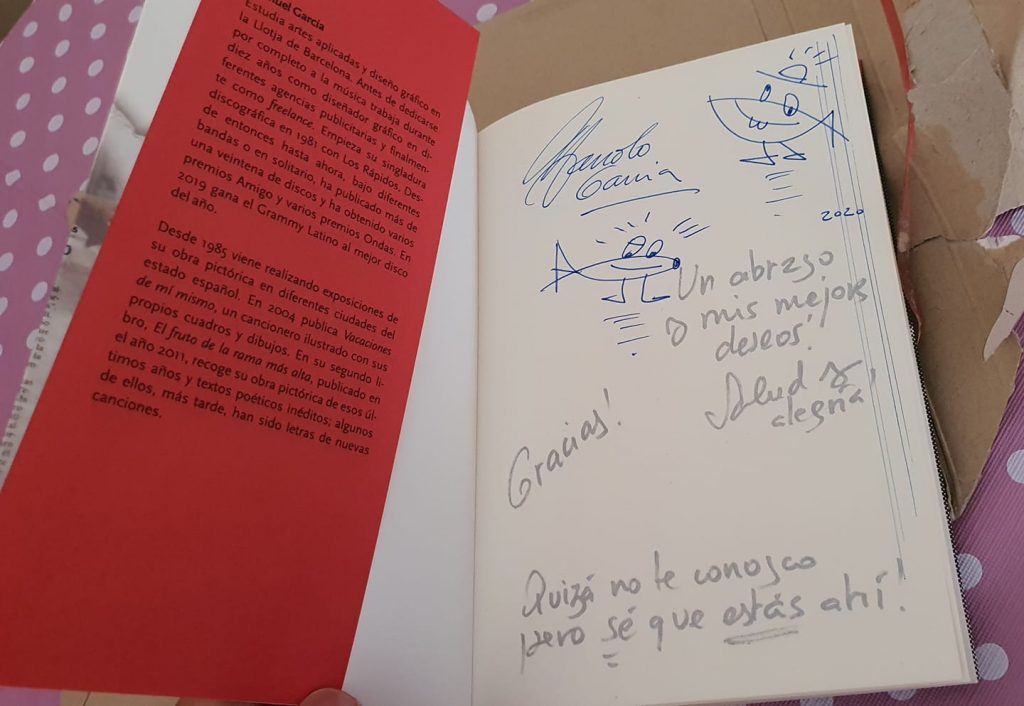 uel García
Estudia artes aplicadas y diseño gráfico en
la Llotja de Barcelona. Antes de dedicarse
por completo a la música trabaja durante
diez años como diseñador gráfico en di-
ferentes agencias publicitarias y finalmen-
te como freelance. Empieza su singladura
discográfica en 1981 con Los Rápidos. Des-
de entonces hasta ahora, bajo diferentes
bandas o en solitario, ha publicado más de
una veintena de discos y ha obtenido varios
premios Amigo y varios premios Ondas. En
2019 gana el Grammy Latino al mejor disco
del año.
Desde 1985 viene realizando exposiciones de
su obra pictórica en diferentes ciudades del
estado español. En 2004 publica Vacaciones
de mí mismo, un cancionero ilustrado con sus
propios cuadros y dibujos. En su segundo li-
bro, El fruto de la rama más alta, publicado en
el año 2011, recoge su obra pictórica de esos úl-
timos años y textos poéticos inéditos; algunos
de ellos, más tarde, han sido letras de nuevas
canciones.
Manolo
García
2020
Un abrazo
y mis mejores
deseos!
Salud y
alegría!
Gracias!
Quizá no te conozco
pero sé que estás ahí!